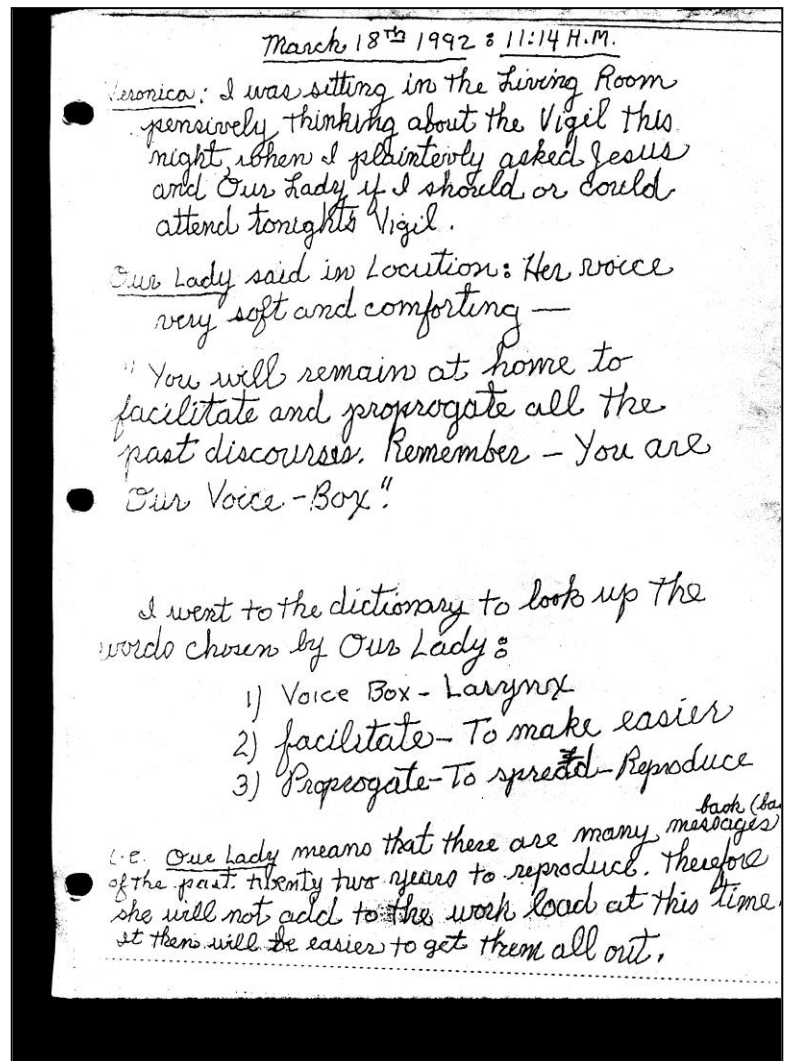 March 18th 1992 : 11:14 A.M.
Veronica: I was sitting in the Living Room
pensively, thinking about the Vigil this
night, when I plaintevly asked Jesus
and Our Lady if I should or could
attend tonights Vigil.
Our Lady said in Locution: Her voice
very soft and comforting —
"You will remain at home to
facilitate and proprogate all the
past discourses. Remember – You are
Our Voice-Box".
I went to the dictionary to look up the
words chosen by Our Lady:
1) Voice Box - Larynx
2) facilitate - To make easier
3) Proprogate - To spread - Reproduce
back (ba
i.e. Our Lady means that there are many messages
of the past twenty two years to reproduce. Therefore
she will not add to the work load at this time.
It then will be easier to get them all out.